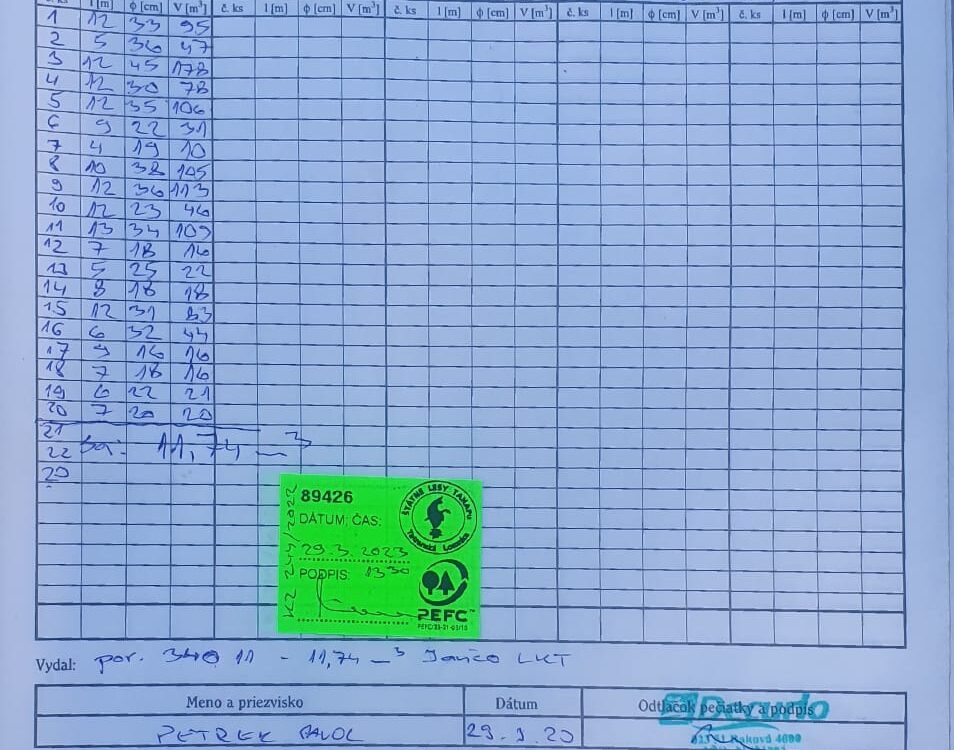 č. ks l [m] ϕ [cm] V [m³] č. ks l [m] ϕ [cm] V [m³] č. ks l [m] ϕ [cm] V [m³] č. ks l [m] ϕ [cm] V [m³] č. ks l [m] ϕ [cm] V [m³]
1 12 33 95
2 5 36 47
3 12 45 178
4 12 30 78
5 12 35 106
6 9 22 31
7 4 19 10
8 10 38 105
9 12 36 113
10 12 23 46
11 13 34 109
12 7 18 16
13 5 25 22
14 8 18 18
15 12 31 83
16 6 32 44
17 9 16 16
18 7 18 16
19 6 22 21
20 7 20 20
21
22 11,74 m³
20
89426
DÁTUM; ČAS:
29.3.2023
PODPIS: 1330
ŠTÁTNE LESY TANAPu
Tatranská Lomnica
PEFC™
Vydal: por. 340 11 - 11,74 m³ Janičo LKT
Meno a priezvisko Dátum Odtlačok pečiatky a podpis
PETREK PAVOL 29.3.20
Raková